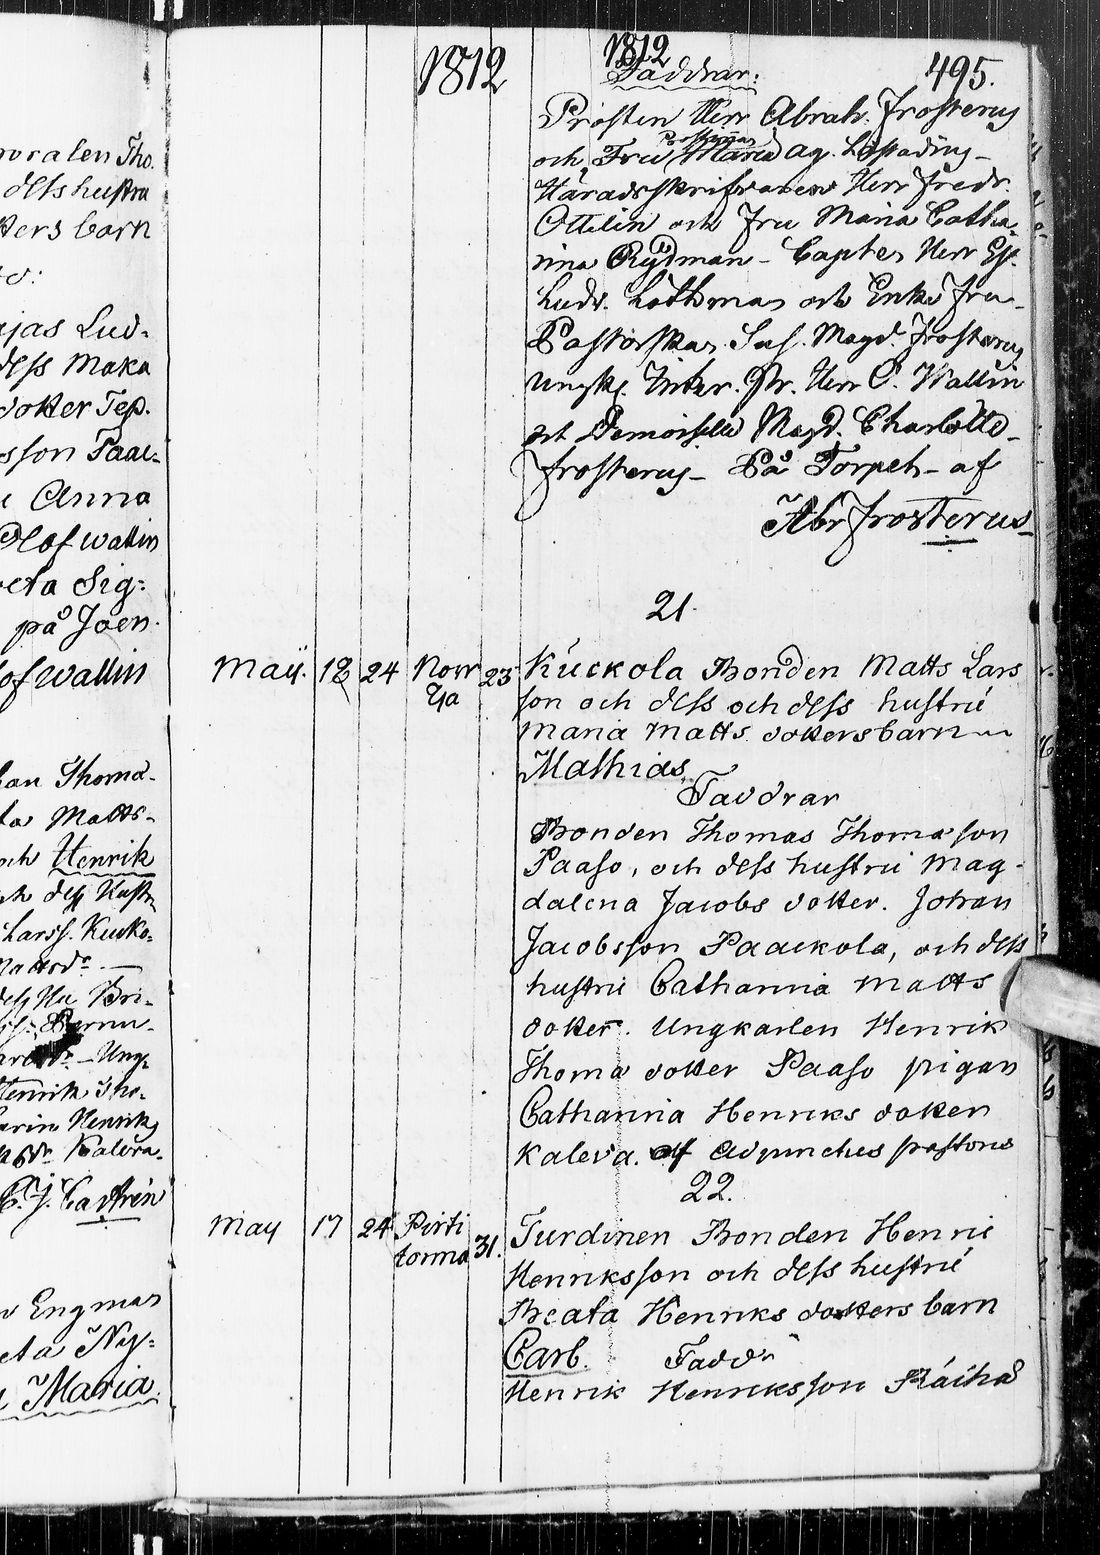 voralen Tho.
dess hustru
ters barn
ajas Lud-
dess Maka
dotter Tep.
sson Paac-
Anna
Olof Wallin
eta Sig-
på Joen.
lof Wallin
han Thoma-
ta Matts-
och Henrik
och dess Hustr
Larss. Kucko-
Mattsdr
dess Hu Bri-
Ung-
Henrik Tho-
arin Henriks
Kaleva-
C. J. Castrén
Engman
eta Ny-
Maria.
1812 1812 495.
Faddrar:
Prosten Herr Abrah. Frosterus
och Fru Prostinnan Maria Ag. Lostading-
Häradsskrifwaren Herr Fredr.
Ottelin och Fru Maria Catha-
rina Rydman - Capten Herr
Ludv. Lothman och Enke Fru-
Pastorskan Sus. Magd. Frosterus
Ungk. Herr O. Wallin
och Demoiselle Magd. Charlotte-
Frosterus - På Torpet - af
Abr Frosterus
21.
Maij. 18 24 Norr 23 Kuckola Bonden Matts Lars
ga son och dess och dess hustru
Maria Matts dotters barn
Mathias
Faddrar
Bonden Thomas Thomasson
Paaso, och dess hustru Mag-
dalena Jacobs dotter. Johan
Jacobsson Paackola, och dess
hustru Catharina Matts
dotter. Ungkarlen Henrik
Thoma dotter Paaso pigan
Catharina Henriks dotter
Kaleva. af Adjunctus pastoris
22.
May 17 24 Pirti 31. Turdinen Bonden Henric
torma Henriksson och dess hustru
Beata Henriks dotters barn
Carl. Faddr
Henrik Henriksson Räihä